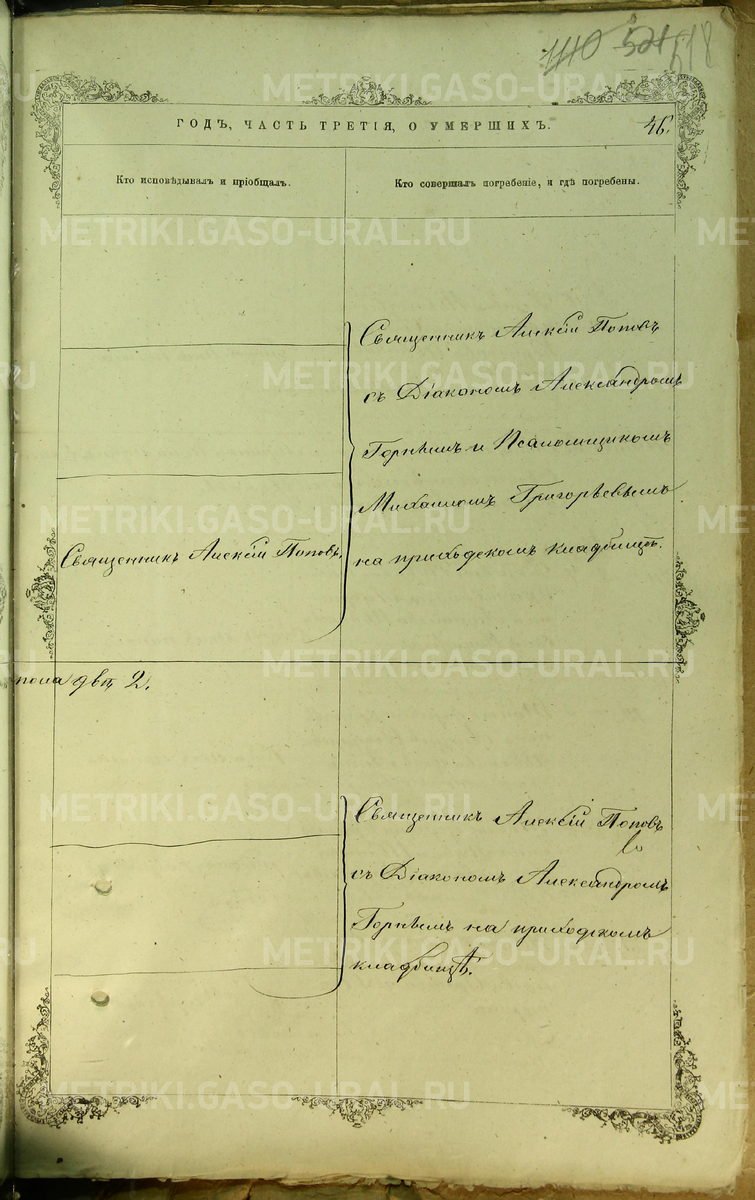 1110 521 518
ГОДЪ, ЧАСТЬ ТРЕТІЯ, О УМЕРШИХЪ.
46.
Кто исповѣдывалъ и пріобщалъ.
Кто совершалъ погребеніе, и гдѣ погребены.
Священникъ Алексій Поповъ
съ Діакономъ Александромъ
Горнымъ и Псаломщикомъ
Михаиломъ Григорьевымъ
на приходскомъ кладбищѣ.
Священникъ Алексій Поповъ.
пола двѣ 2.
Священникъ Алексій Поповъ
съ Діакономъ Александромъ
Горнымъ на приходскомъ
кладбищѣ.
METRIKI.GASO-URAL.RU